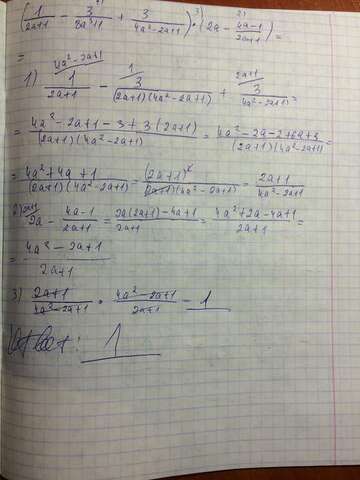 (1/(2a+1) - 3/(8a³+1) + 3/(4a²-2a+1)) · (2a - (4a-1)/(2a+1)) =
=
1) 1/(2a+1) - 3/((2a+1)(4a²-2a+1)) + 3/(4a²-2a+1) =
= (4a²-2a+1-3+3(2a+1))/((2a+1)(4a²-2a+1)) = (4a²-2a-2+6a+3)/((2a+1)(4a²-2a+1)) =
= (4a²+4a+1)/((2a+1)(4a²-2a+1)) = (2a+1)²/((2a+1)(4a²-2a+1)) = (2a+1)/(4a²-2a+1)
2) 2a - (4a-1)/(2a+1) = (2a(2a+1)-4a+1)/(2a+1) = (4a²+2a-4a+1)/(2a+1) =
= (4a²-2a+1)/(2a+1)
3) (2a+1)/(4a²-2a+1) · (4a²-2a+1)/(2a+1) = 1
Ответ: 1